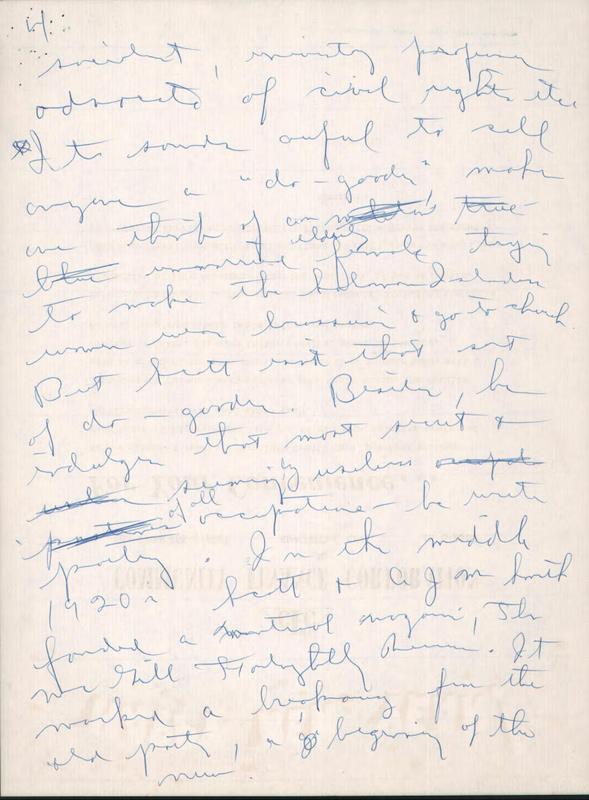 scientist, minority professor
advocate of civil rights etc.
It sounds awful to call
anyone a "do-gooder", makes
one think of an elderly
unmarried female trying
to make the Solomon Islands
women wear brassiers & go to church.
But Scott isn't that sort
of do-gooder. Besides, he
indulges that most secret &
seemingly useless
of all occupations - he writes
poetry. In the middle
1920s Scott & A.J.M. Smith
founded a magazine, The
McGill Fortnightly Review. It
marked a breakaway from the
old poetry, a beginning of the
new.